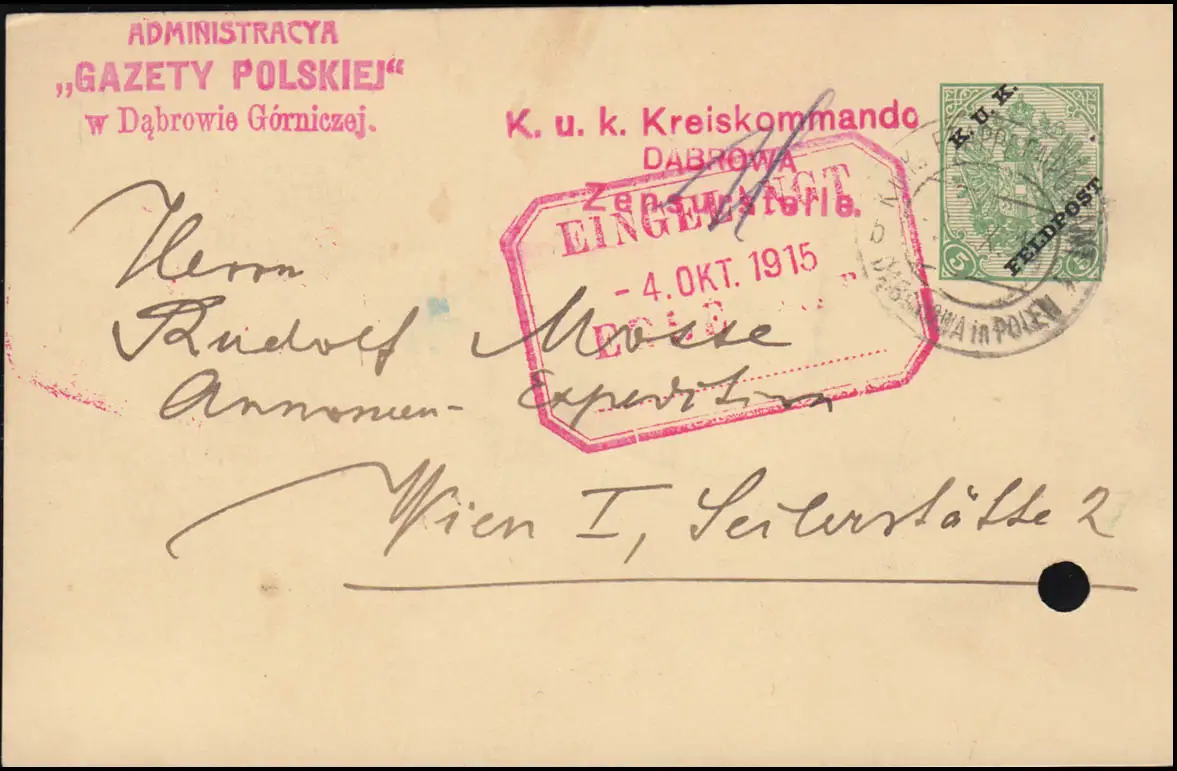 ADMINISTRACYA
„GAZETY POLSKIEJ“
w Dąbrowie Górniczej.
K. u. k. Kreiskommando
DĄBROWA
Zensurstelle.
K. U. K.
FELDPOST
5
DĄBROWA in POLEN
b
EINGELANGT
- 4. OKT. 1915
Herrn
Rudolf Mosse
Annoncen- Expedition
Wien I, Seilerstätte 2